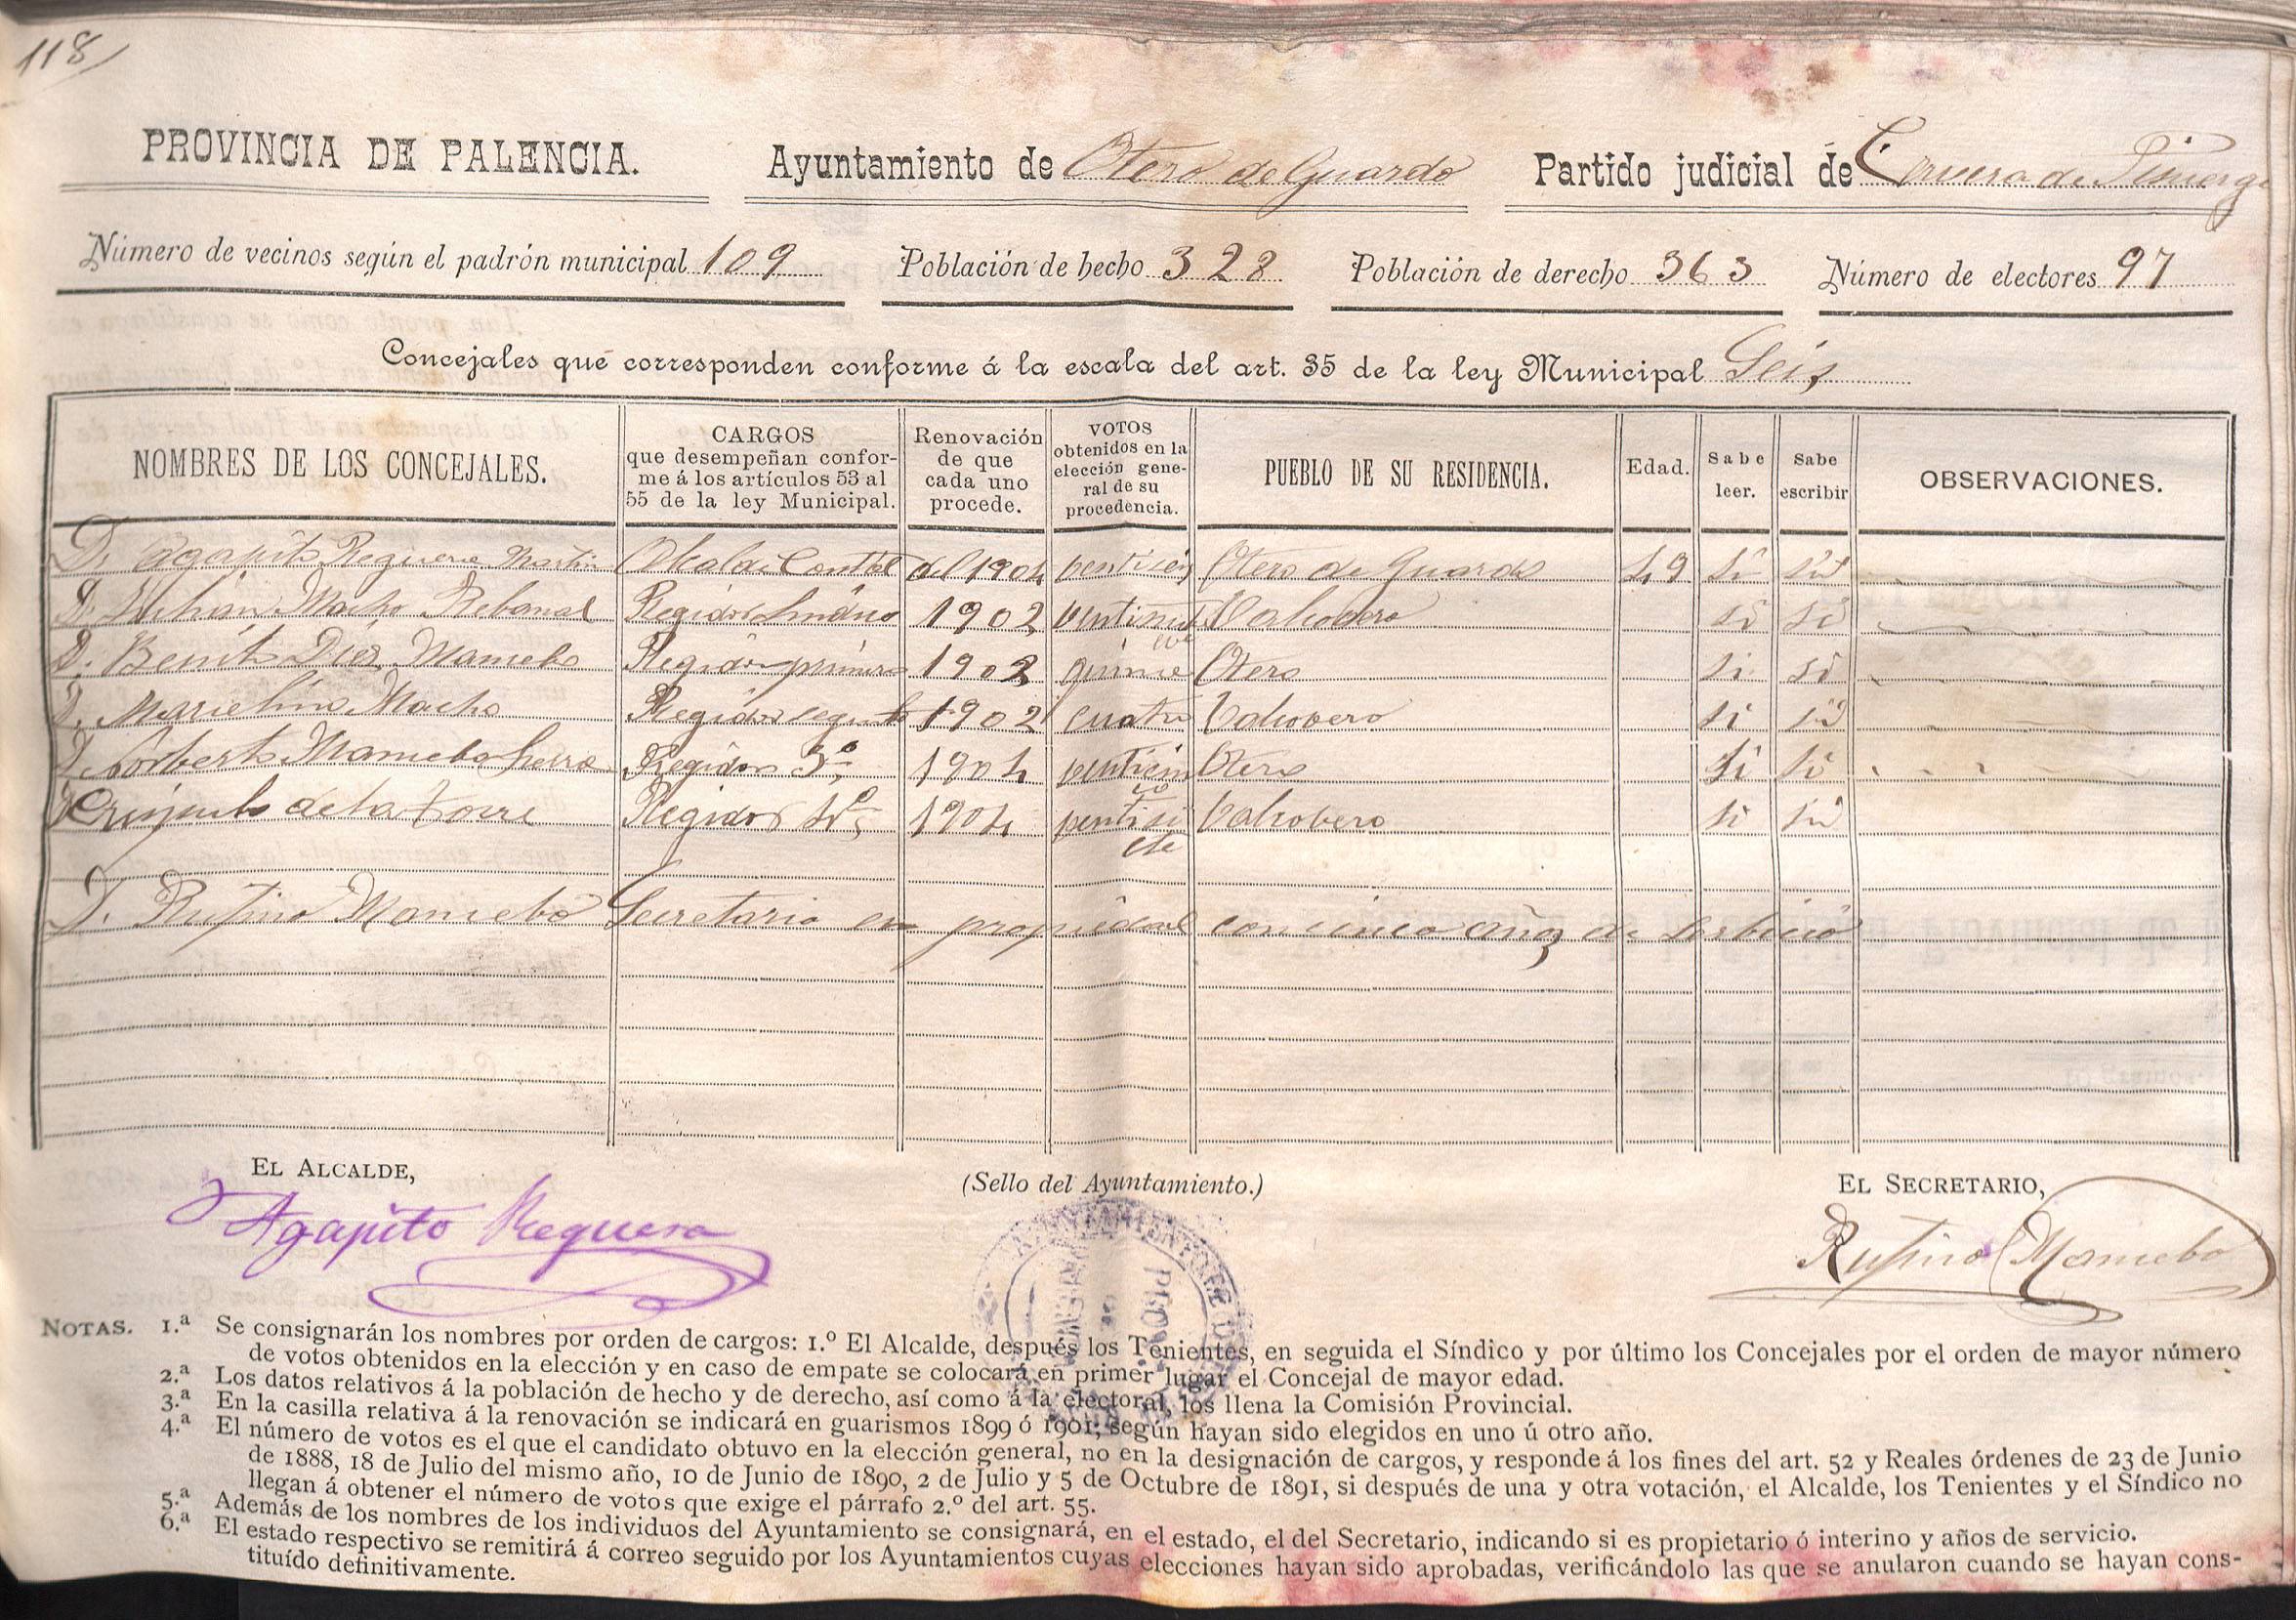 118
PROVINCIA DE PALENCIA. Ayuntamiento de Otero de Guardo Partido judicial de Cervera de Pisuerga
Número de vecinos según el padrón municipal 109 Población de hecho 328 Población de derecho 363 Número de electores 97
Concejales que corresponden conforme á la escala del art. 35 de la ley Municipal Seis
NOMBRES DE LOS CONCEJALES. CARGOS que desempeñan conforme á los artículos 53 al 55 de la ley Municipal. Renovación de que cada uno procede. VOTOS obtenidos en la elección general de su procedencia. PUEBLO DE SU RESIDENCIA. Edad. Sabe leer. Sabe escribir OBSERVACIONES.
D. Agapito Reguera Martin Alcalde Contal del 1904 Otero de Guardo 49 si si
D. Julián Macho Rebanal Regidor Sindico 1902 ventinueve Valcobero si si
D. Benito Diez Mancebo Regidor primero 1902 quince Otero si si
D. Marcelino Macho Regidor segundo 1902 cuatro Valcobero si si
D. Norberto Mancebo Regidor 3º 1904 venticinco Otero si si
D. Crisjulo de la Torre Regidor 4º 1904 ventisiete Valcobero si si
D. Rufino Mancebo Secretario en propiedad con cinco años de serbicio
EL ALCALDE, (Sello del Ayuntamiento.) EL SECRETARIO,
Agapito Reguera Rufino Mancebo
NOTAS. 1.ª Se consignarán los nombres por orden de cargos: 1.º El Alcalde, después los Tenientes, en seguida el Síndico y por último los Concejales por el orden de mayor número
de votos obtenidos en la elección y en caso de empate se colocará en primer lugar el Concejal de mayor edad.
2.ª Los datos relativos á la población de hecho y de derecho, así como á la electoral, los llena la Comisión Provincial.
3.ª En la casilla relativa á la renovación se indicará en guarismos 1899 ó 1901; según hayan sido elegidos en uno ú otro año.
4.ª El número de votos es el que el candidato obtuvo en la elección general, no en la designación de cargos, y responde á los fines del art. 52 y Reales órdenes de 23 de Junio
de 1888, 18 de Julio del mismo año, 10 de Junio de 1890, 2 de Julio y 5 de Octubre de 1891, si después de una y otra votación, el Alcalde, los Tenientes y el Síndico no
llegan á obtener el número de votos que exige el párrafo 2.º del art. 55.
5.ª Además de los nombres de los individuos del Ayuntamiento se consignará, en el estado, el del Secretario, indicando si es propietario ó interino y años de servicio.
6.ª El estado respectivo se remitirá á correo seguido por los Ayuntamientos cuyas elecciones hayan sido aprobadas, verificándolo las que se anularon cuando se hayan cons-
tituído definitivamente.